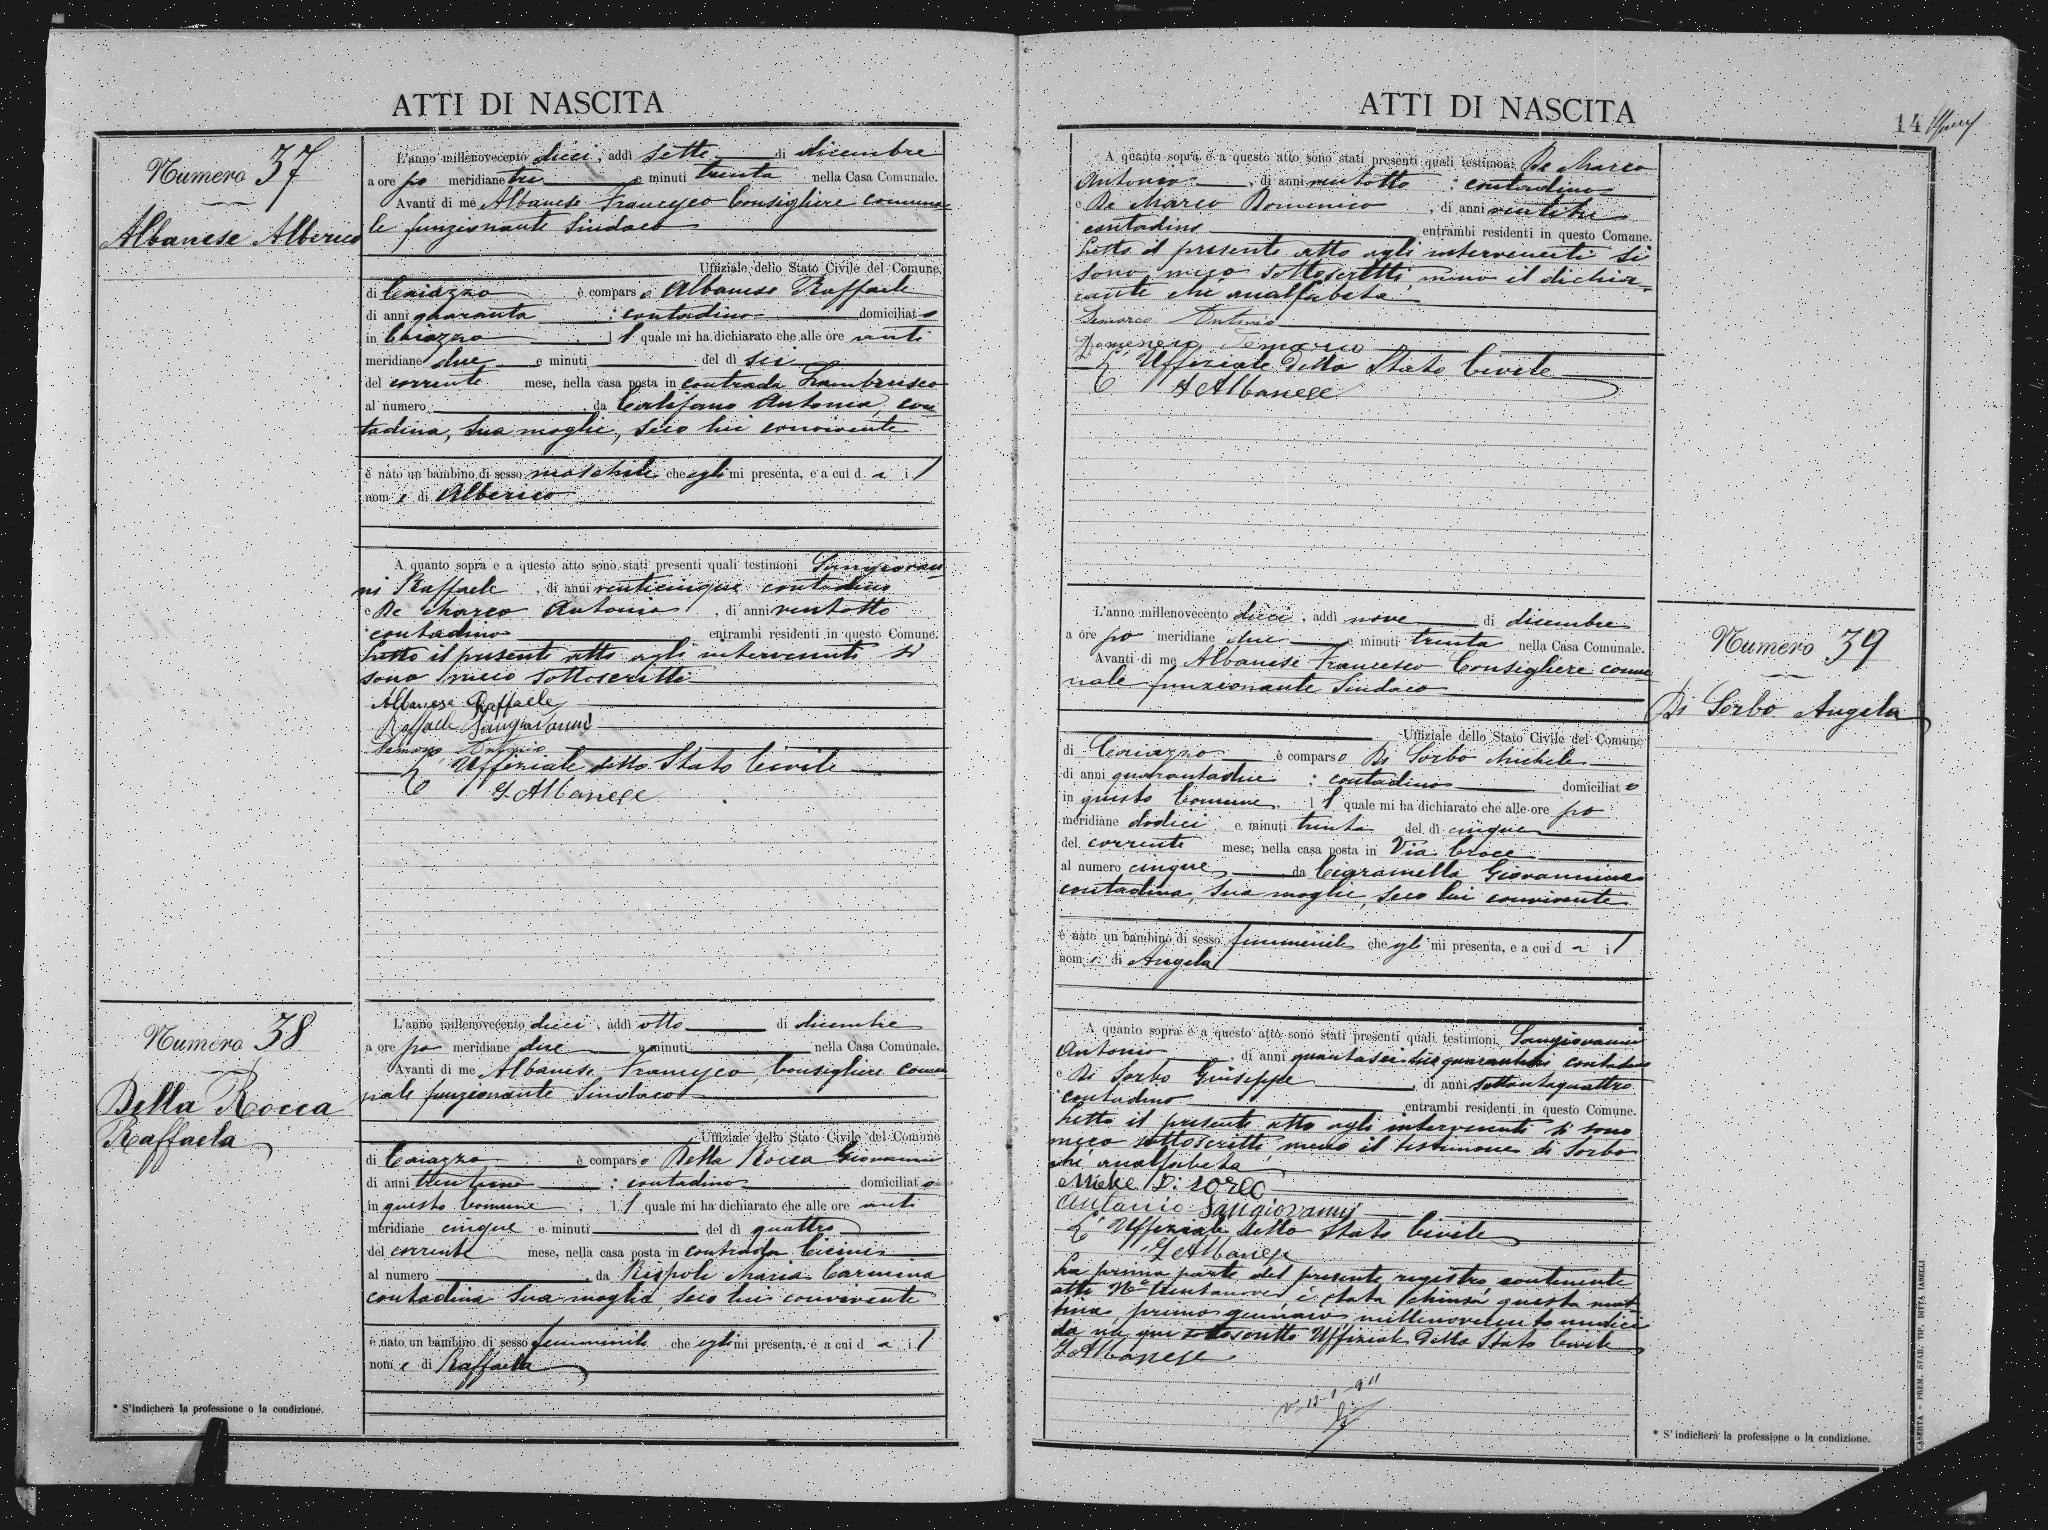 ATTI DI NASCITA
Numero 37
Albanese Alberico
L'anno millenovecento dieci, addì sette di dicembre
a ore po meridiane tre e minuti trenta nella Casa Comunale.
Avanti di me Albanese Francesco Consigliere comuna
le funzionante Sindaco
Uffiziale dello Stato Civile del Comune
di Caiazzo è comparso Albanese Raffaele
di anni quaranta : contadino domiciliato
in Caiazzo l l quale mi ha dichiarato che alle ore anti
meridiane due e minuti del dì sei
del corrente mese, nella casa posta in contrada
al numero da Califano Antonia, con
tadina, sua moglie, seco lui convivente
è nato un bambino di sesso maschile che egli mi presenta, e a cui d a i l
nom e di Alberico
A quanto sopra e a questo atto sono stati presenti quali testimoni Sangiovan
ni Raffaele, di anni venticinque contadino
e De Marco Antonio, di anni ventotto
contadino entrambi residenti in questo Comune.
Letto il presente atto agli intervenuti si
sono meco sottoscritti
Albanese Raffaele
Raffaele Sangiovanni
Demarco Antonio
L' Uffiziale dello Stato Civile
F Albanese
Numero 38
Della Rocca
Raffaela
L'anno millenovecento dieci, addì otto di dicembre
a ore po meridiane due e minuti nella Casa Comunale.
Avanti di me Albanese Francesco, Consigliere comu
nale funzionante Sindaco
Uffiziale dello Stato Civile del Comune
di Caiazzo è comparso Della Rocca Giovanni
di anni trentuno : contadino domiciliato
in questo Comune, l l quale mi ha dichiarato che alle ore anti
meridiane cinque e minuti del dì quattro
del corrente mese, nella casa posta in contrada
al numero da Rispoli Maria Carmina
contadina sua moglie, seco lui convivente
è nato un bambino di sesso femminile che egli mi presenta, e a cui d a i l
nom e di Raffaela
* S'indicherà la professione o la condizione.
ATTI DI NASCITA
14
A quanto sopra e a questo atto sono stati presenti quali testimoni De Marco
Antonio, di anni ventotto : contadino
e De Marco Domenico, di anni ventitre
contadino entrambi residenti in questo Comune.
Letto il presente atto agli intervenuti si
sono meco sottoscritti, meno il dichia-
rante chè analfabeta
Demarco Antonio
Domenico Demarco
L' Uffiziale dello Stato Civile
F Albanese
Numero 39
Di Sorbo Angela
L'anno millenovecento dieci, addì nove di dicembre
a ore po meridiane due e minuti trenta nella Casa Comunale.
Avanti di me Albanese Francesco Consigliere comu
nale funzionante Sindaco
Uffiziale dello Stato Civile del Comune
di Caiazzo è comparso Di Sorbo Michele
di anni quarantadue : contadino domiciliato
in questo Comune, l l quale mi ha dichiarato che alle ore po
meridiane dodici e minuti trenta del dì cinque
del corrente mese, nella casa posta in Via Croce
al numero cinque da Giovannina
contadina, sua moglie, seco lui convivente
è nato un bambino di sesso femminile che egli mi presenta, e a cui d a i l
nom e di Angela
A quanto sopra e a questo atto sono stati presenti quali testimoni Sangiovanni
Antonio, di anni contadino
e Di Sorbo Giuseppe, di anni settantaquattro
contadino entrambi residenti in questo Comune.
Letto il presente atto agli intervenuti si sono
meco sottoscritti, meno il testimone di Sorbo
chè analfabeta
Di Sorbo
Antonio Sangiovanni
L' Uffiziale dello Stato Civile
F Albanese
La prima parte del presente registro contenente
atti N° trentanove è stata chiusa questa mat
tina primo gennaio millenovecento undici
da me qui sottoscritto Uffiziale dello Stato Civile
F Albanese
* S'indicherà la professione o la condizione.
CASERTA - PREM. STAB. TIP. DITTA IASELLI